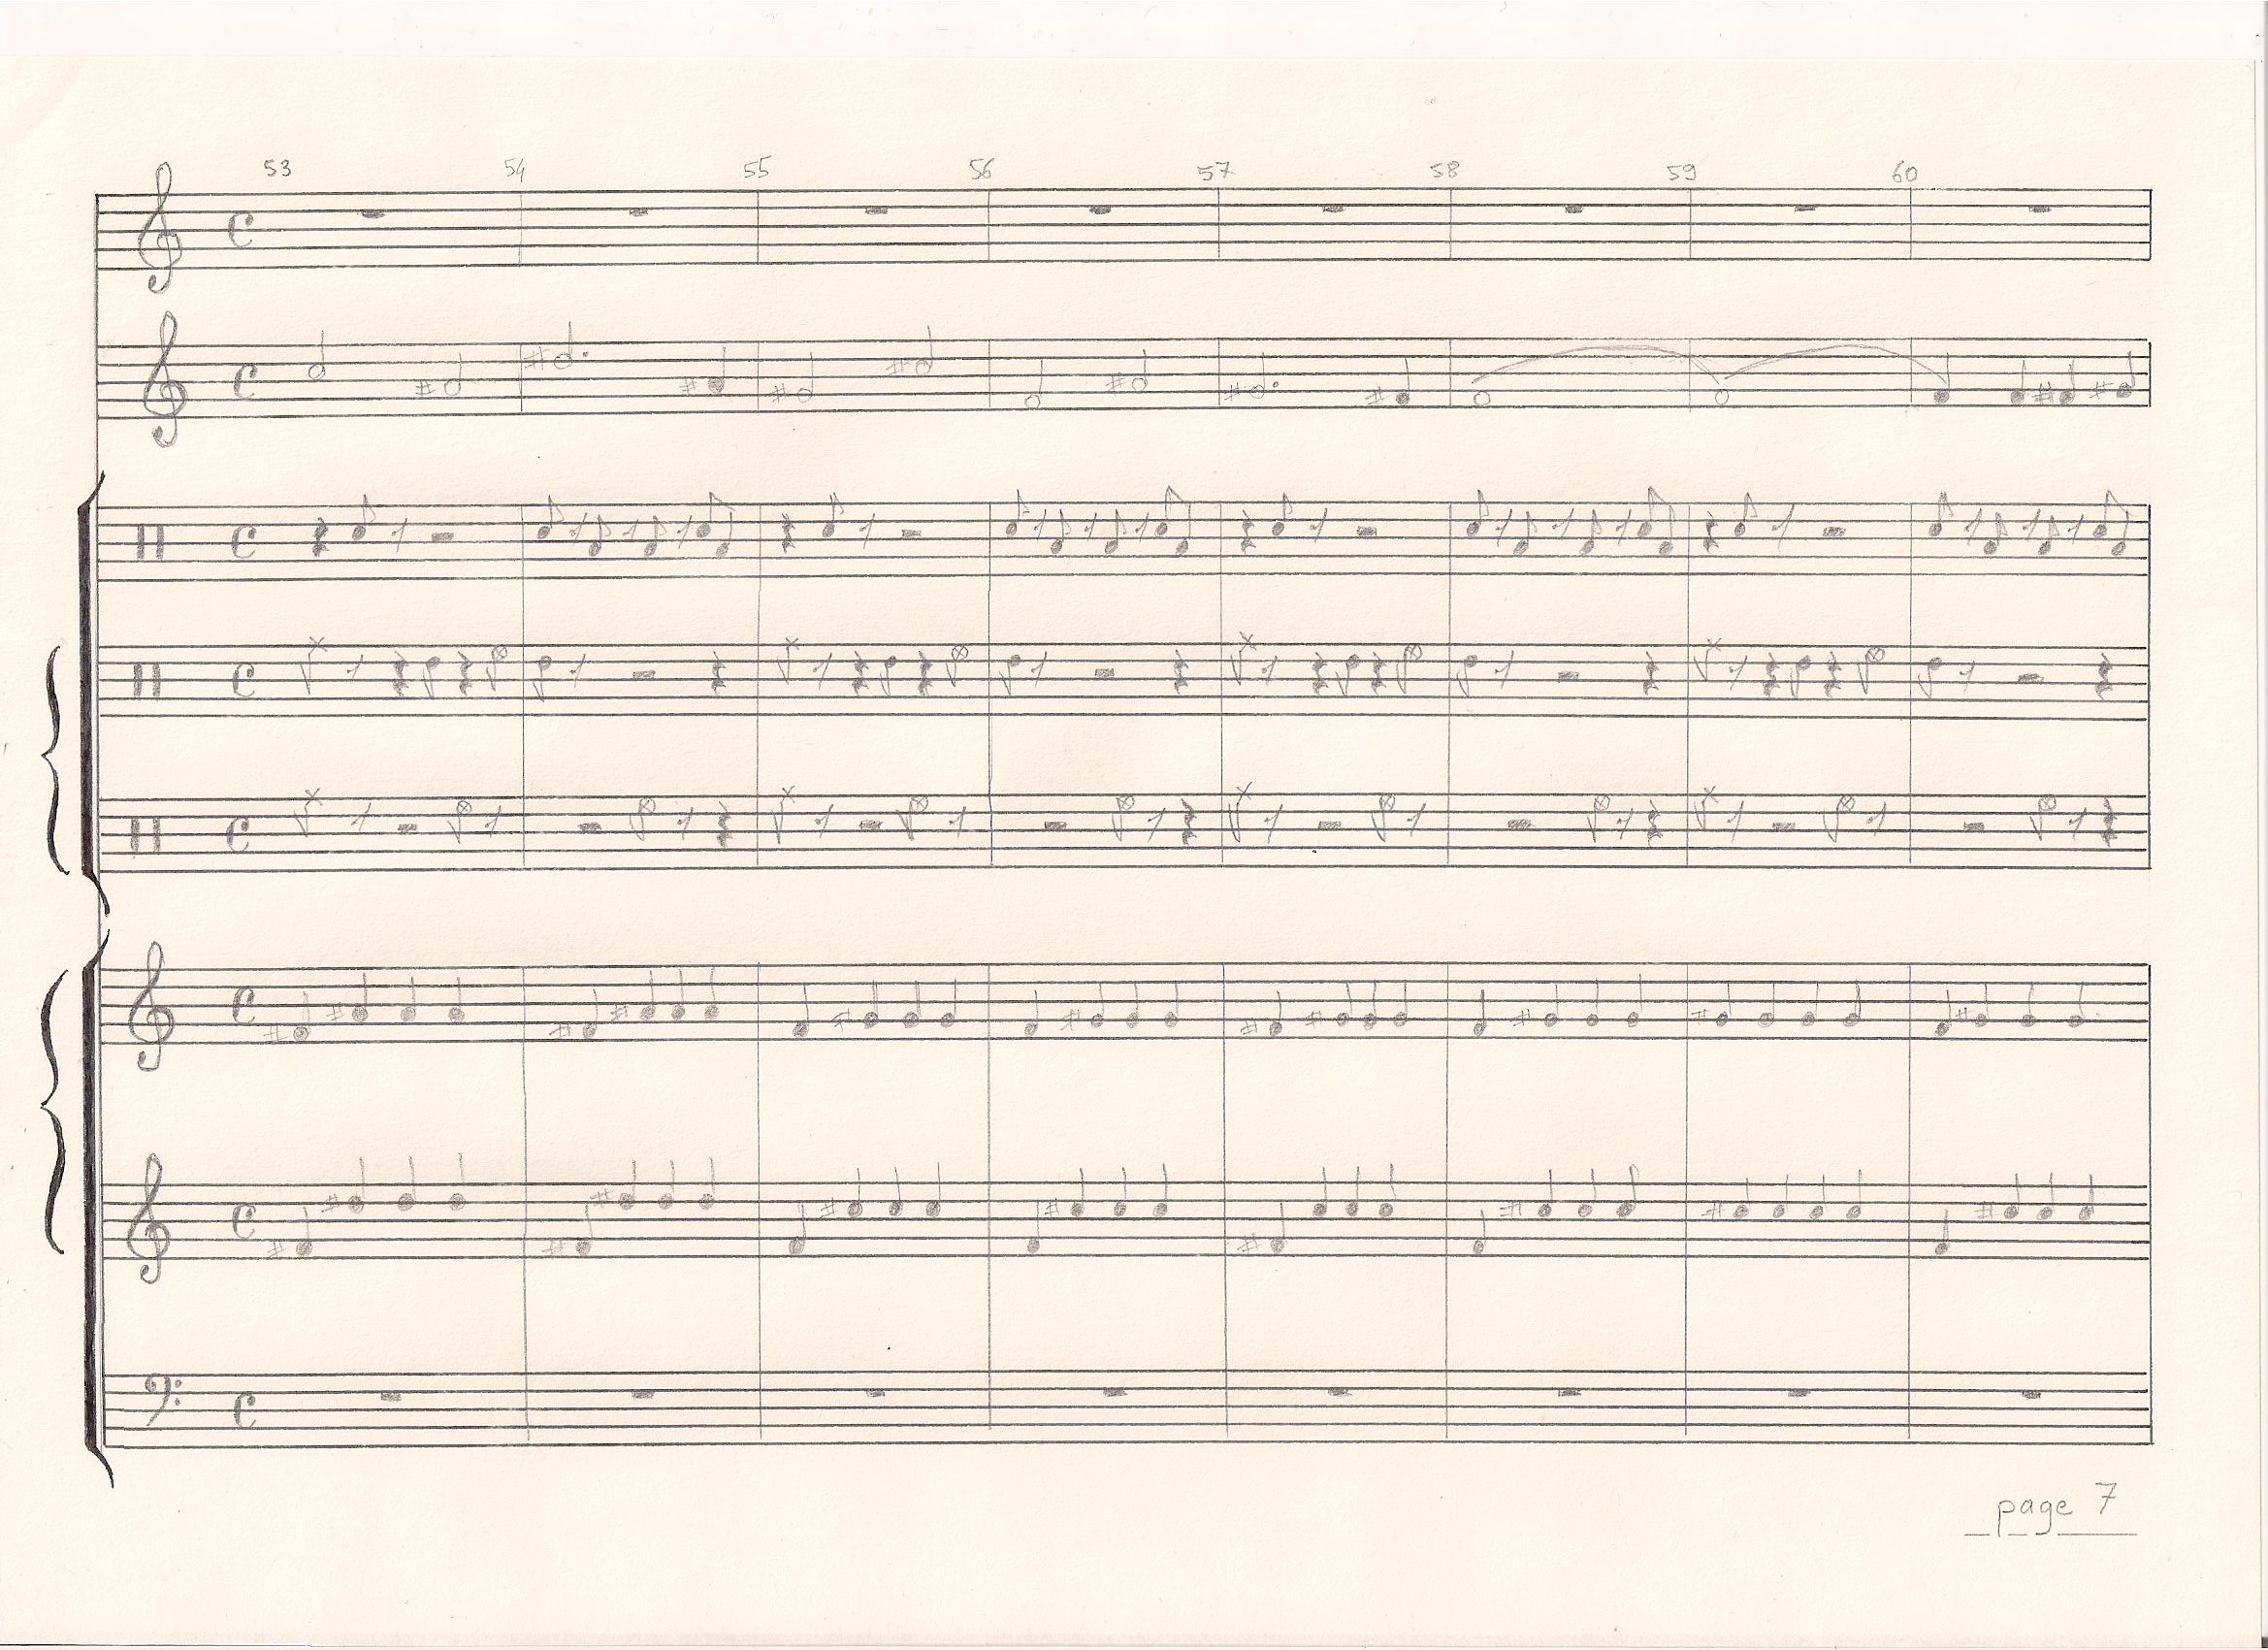 53 54 55 56 57 58 59 60
page 7